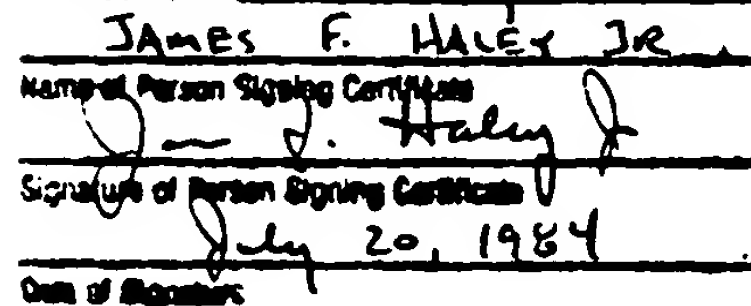 JAMES F. HALEY JR.
Name of Person Signing Certificate
J F. Haley Jr
Signature of Person Signing Certificate
July 20, 1984
Date of Signature